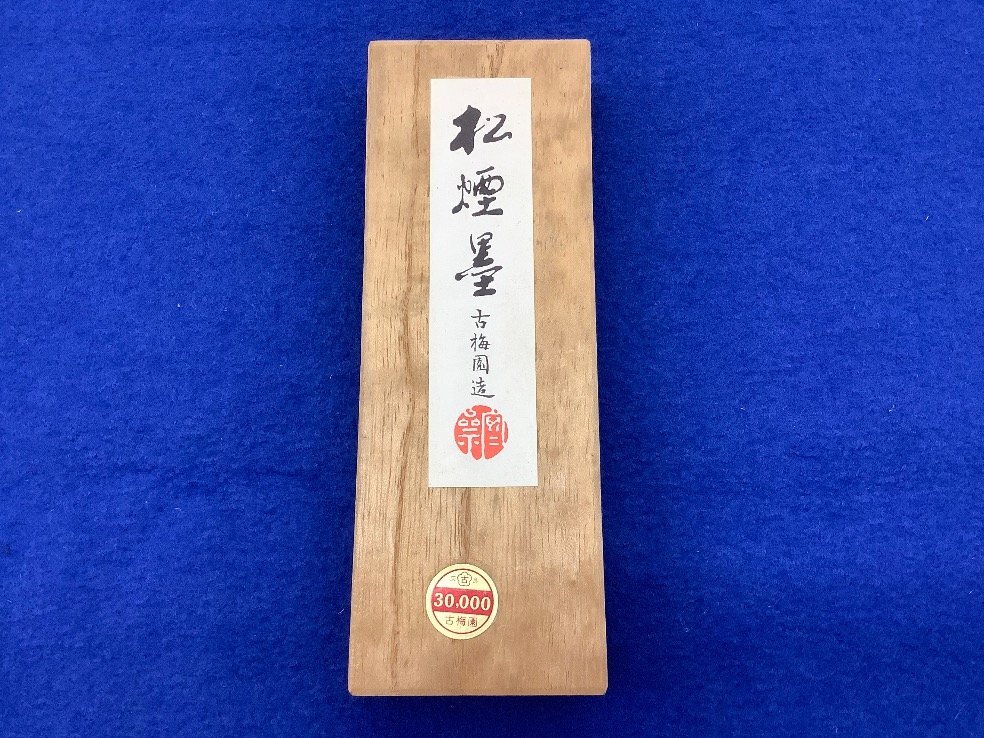 松煙墨
古梅園造
古
30,000
古梅園